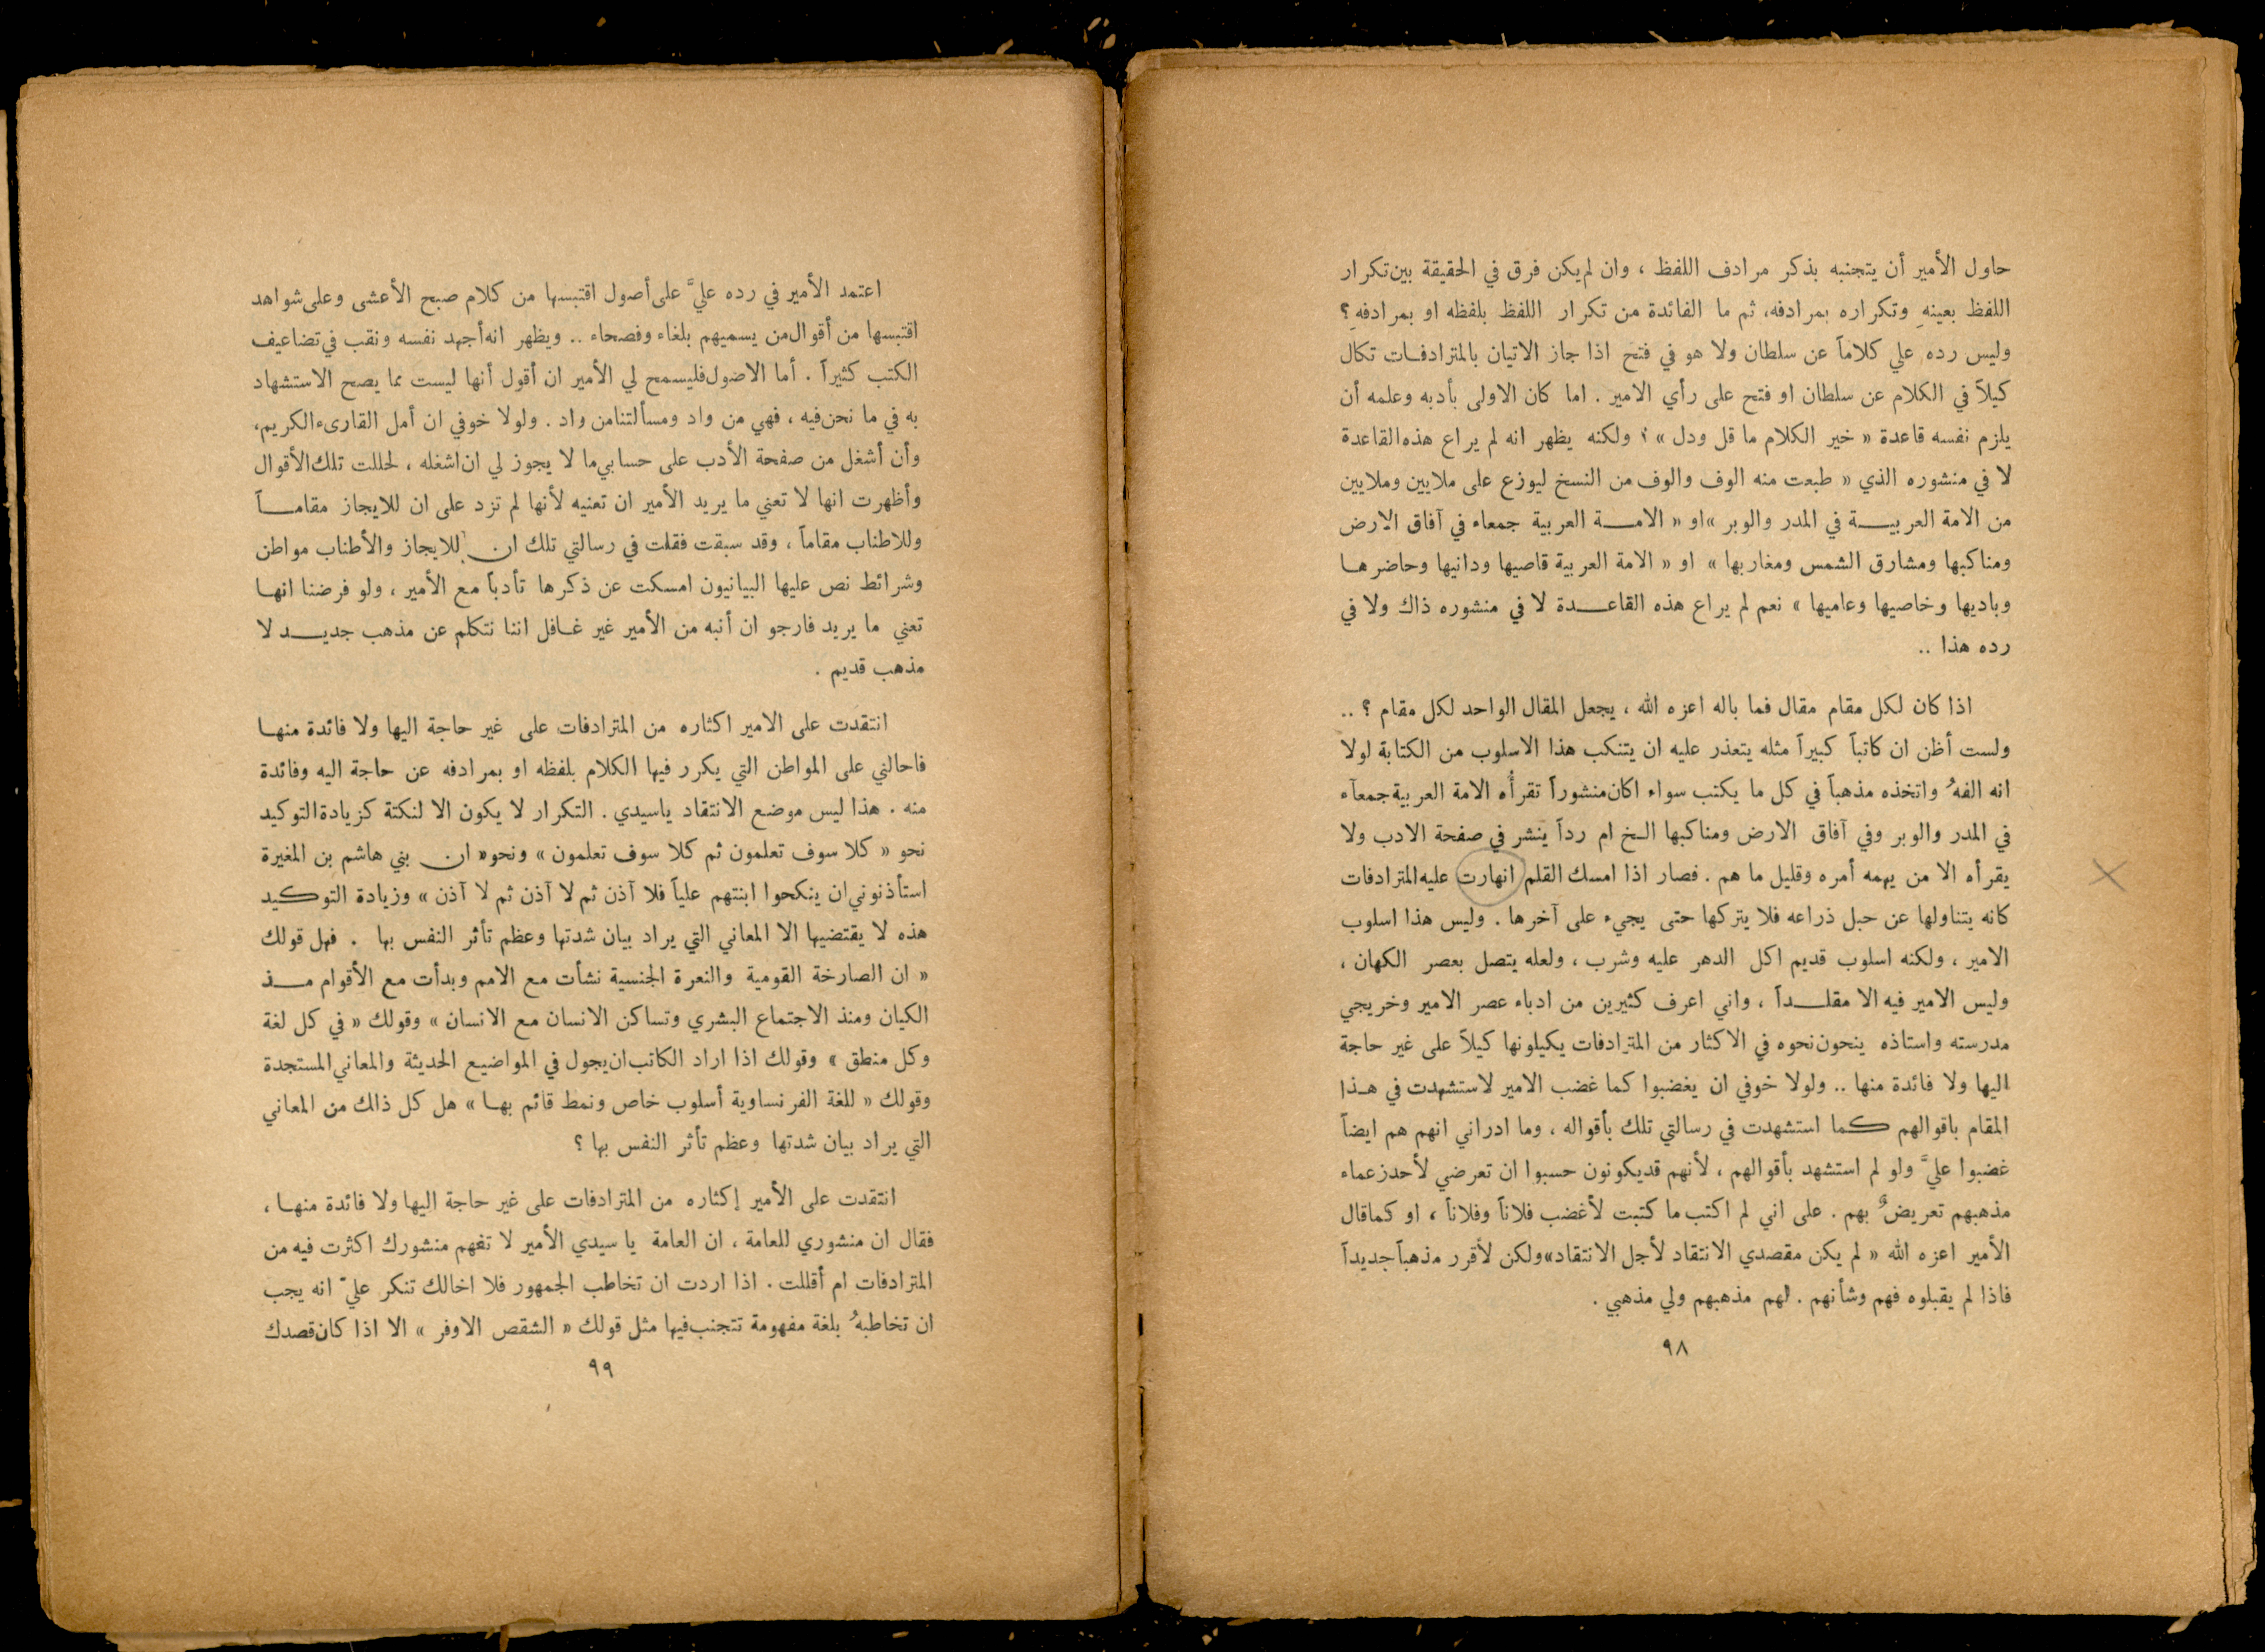 حاول الأمير أن يتجنبه بذكر مرادف اللفظ ، وان لم يكن فرق في الحقيقة بين تكرار
اللفظ بعينهِ وتكراره بمرادفه، ثم ما الفائدة من تكرار اللفظ بلفظه او بمرادفهِ؟
وليس رده علي كلاماً عن سلطان ولا هو في فتح اذا جاز الاتيان بالمترادفات تكال
كيلاً في الكلام عن سلطان او فتح على رأي الامير . اما كان الاولى بأدبه وعلمه أن
يلزم نفسه قاعدة « خير الكلام ما قل ودل » ؟ ولكنه يظهر انه لم يراع هذه القاعدة
لا في منشوره الذي « طبعت منه الوف والوف من النسخ ليوزع على ملايين وملايين
من الامة العربيــة في المدر والوبر »او « الامــة العربية جمعاء في آفاق الارض
ومناكبها ومشارق الشمس ومغاربها » او « الامة العربية قاصيها ودانيها وحاضرهـا
وباديها وخاصيها وعاميها » نعم لم يراع هذه القاعــدة لا في منشوره ذاك ولا في
رده هذا ..
اذا كان لكل مقام مقال فما باله اعزه الله ، يجعل المقال الواحد لكل مقام ؟ ..
ولست أظن ان كاتباً كبيراً مثله يتعذر عليه ان يتنكب هذا الاسلوب من الكتابة لولا
انه الفهُ واتخذه مذهباً في كل ما يكتب سواء اكان منشوراً تقرأُه الامة العربية جمعآء
في المدر والوبر وفي آفاق الارض ومناكبها الـخ ام رداً ينشر في صفحة الادب ولا
يقرأه الا من يهمه أمره وقليل ما هم . فصار اذا امسك القلم انهارت عليه المترادفات
كانه يتناولها عن حبل ذراعه فلا يتركها حتى يجيء على آخرها . وليس هذا اسلوب
الامير ، ولكنه اسلوب قديم اكل الدهر عليه وشرب ، ولعله يتصل بعصر الكهان ،
وليس الامير فيه الا مقلــداً ، واني اعرف كثيرين من ادباء عصر الامير وخريجي
مدرسته واستاذه ينحون نحوه في الاكثار من المترادفات يكيلونها كيلاً على غير حاجة
اليها ولا فائدة منها .. ولولا خوفي ان يغضبوا كما غضب الامير لاستشهدت في هـذا
المقام باقوالهم كما استشهدت في رسالتي تلك بأقواله ، وما ادراني انهم هم ايضاً
غضبوا عليَّ ولو لم استشهد بأقوالهم ، لأنهم قد يكونون حسبوا ان تعرضي لأحد زعماء
مذهبهم تعريضٌ بهم . على اني لم اكتب ما كتبت لأغضب فلاناً وفلاناً ، او كما قال
الأمير اعزه الله « لم يكن مقصدي الانتقاد لأجل الانتقاد» ولكن لأقرر مذهباً جديداً
فاذا لم يقبلوه فهم وشأنهم . لهم مذهبهم ولي مذهبي .
٩٨
اعتمد الأمير في رده عليَّ على أصول اقتبسها من كلام صبح الأعشى وعلى شواهد
اقتبسها من أقوال من يسميهم بلغاء وفصحاء .. ويظهر انه أجهد نفسه ونقب في تضاعيف
الكتب كثيراً . أما الاصول فليسمح لي الأمير ان أقول أنها ليست مما يصح الاستشهاد
به في ما نحن فيه ، فهي من واد ومسألتنا من واد . ولولا خوفي ان أمل القارىء الكريم،
وأن أشغل من صفحة الأدب على حسابي ما لا يجوز لي ان اشغله ، لحللت تلك الأقوال
وأظهرت انها لا تعني ما يريد الأمير ان تعنيه لأنها لم تزد على ان للايجاز مقامــاً
وللاطناب مقاماً ، وقد سبقت فقلت في رسالتي تلك ان للايجاز والأطناب مواطن
وشرائط نص عليها البيانيون امسكت عن ذكرها تأدباً مع الأمير ، ولو فرضنا انهـا
تعني ما يريد فارجو ان أنبه من الأمير غير غـافل اننا نتكلم عن مذهب جديــد لا
مذهب قديم .
انتقدت على الامير اكثاره من المترادفات على غير حاجة اليها ولا فائدة منهـا
فاحالني على المواطن التي يكرر فيها الكلام بلفظه او بمرادفه عن حاجة اليه وفائدة
منه . هذا ليس موضع الانتقاد ياسيدي . التكرار لا يكون الا لنكتة كزيادة التوكيد
نحو « كلا سوف تعلمون ثم كلا سوف تعلمون » ونحو« ان بني هاشم بن المغيرة
استأذنوني ان ينكحوا ابنتهم علياً فلا آذن ثم لا آذن ثم لا آذن » وزيادة التوكيد
هذه لا يقتضيها الا المعاني التي يراد بيان شدتها وعظم تأثر النفس بها . فهل قولك
« ان الصارخة القومية والنعرة الجنسية نشأت مع الامم وبدأت مع الأقوام مــذ
الكيان ومنذ الاجتماع البشري وتساكن الانسان مع الانسان » وقولك « في كل لغة
وكل منطق » وقولك اذا اراد الكاتب ان يجول في المواضيع الحديثة والمعاني المستجدة
وقولك « للغة الفرنساوية أسلوب خاص ونمط قائم بهـا » هل كل ذاك من المعاني
التي يراد بيان شدتها وعظم تأثر النفس بها ؟
انتقدت على الأمير إكثاره من المترادفات على غير حاجة اليها ولا فائدة منهـا ،
فقال ان منشوري للعامة ، ان العامة يا سيدي الأمير لا تفهم منشورك اكثرت فيه من
المترادفات ام أقللت . اذا اردت ان تخاطب الجمهور فلا اخالك تنكر عليّ انه يجب
ان تخاطبهُ بلغة مفهومة تتجنب فيها مثل قولك « الشقص الاوفر » الا اذا كان قصدك
٩٩